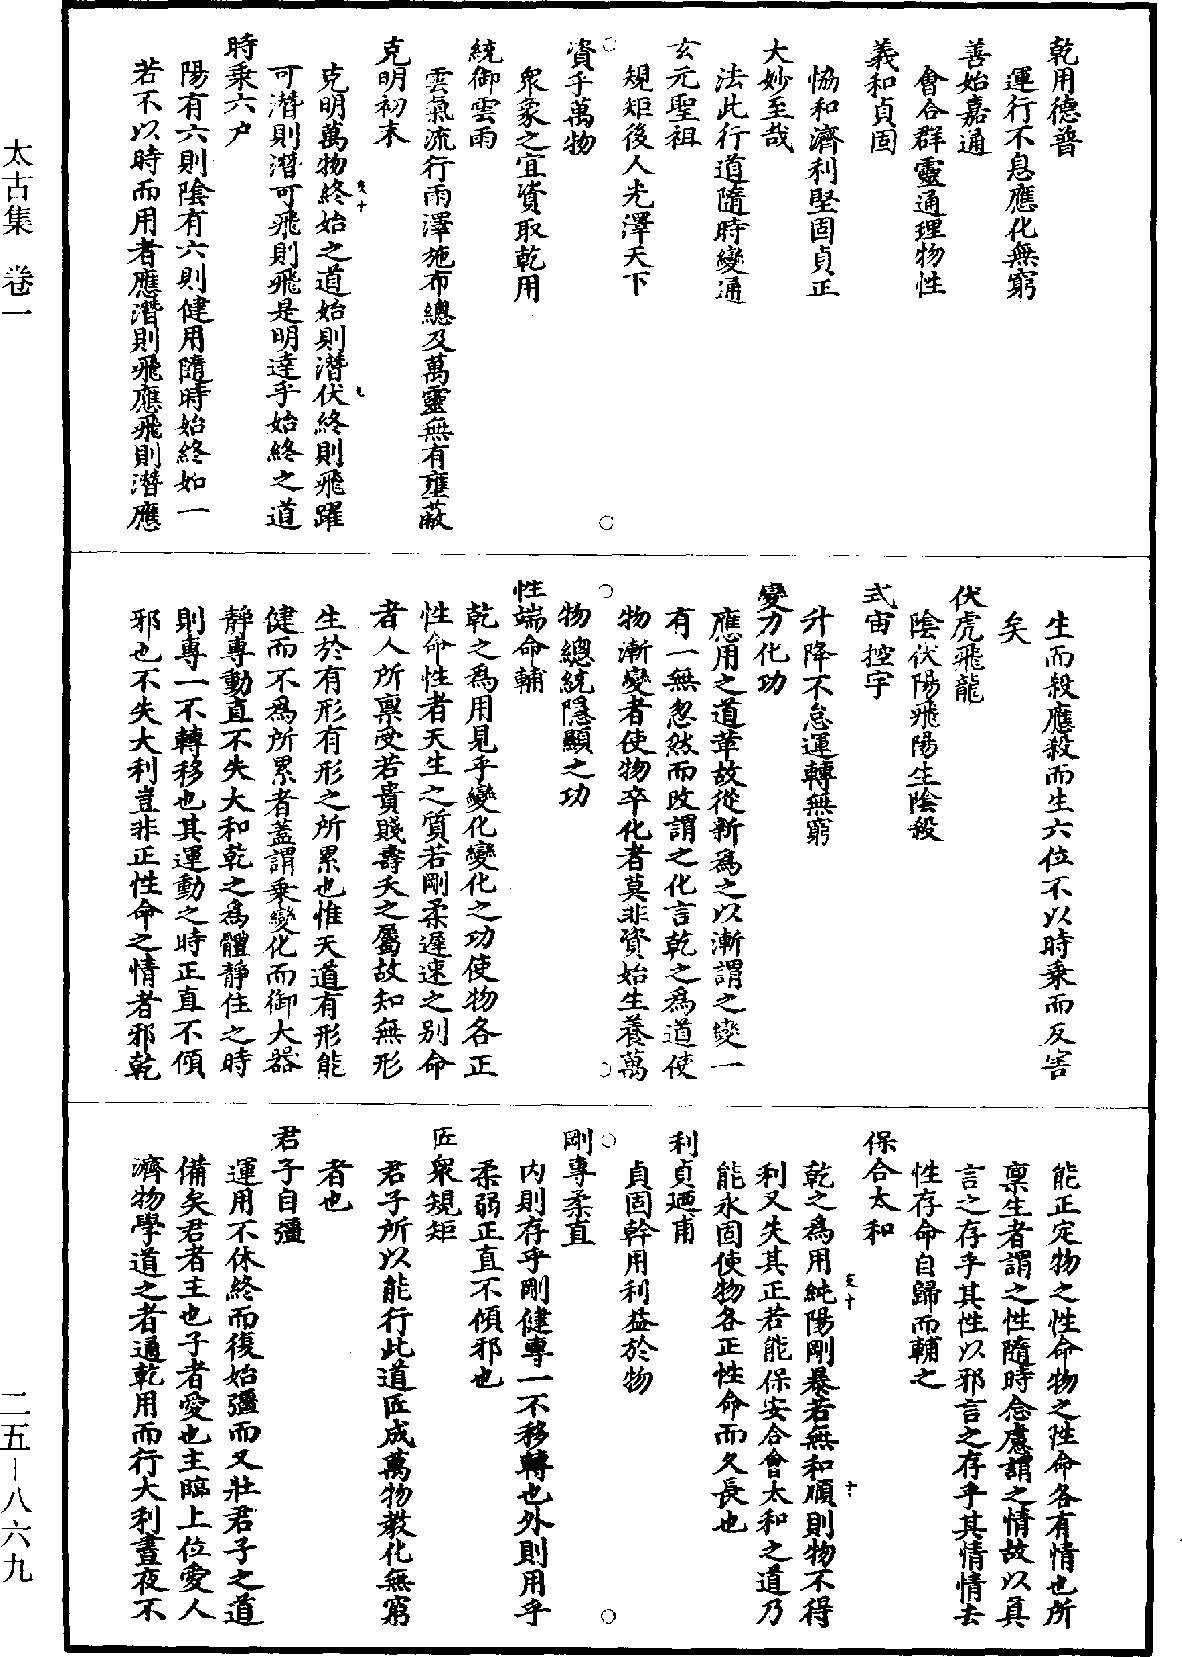 乾用德普
運行不息應化無窮
善始嘉通
會合群靈通理物性
義和貞固
恊和濟利堅固貞正
大妙至哉
法此行道隨時變通
玄元聖祖
規矩後人光澤天下
資乎萬物
衆象之宜資取乾用
統御雲雨
雲氣流行雨澤施布總及萬靈無有壅蔽
克明初末
克明萬物終始之道始則潛伏終則飛躍
可潛則潛可飛則飛是明達乎始終之道
時乘六户
陽有六則陰有六則健用隨時始終如一
若不以時而用者應潛則飛應飛則潛應
生而殺應殺而生六位不以時乘而反害
矣
伏虎飛龍
陰伏陽飛陽生陰殺
式宙控宇
升降不怠運轉無窮
變力化功
應用之道革故從新為之以漸謂之變一
有一無忽然而改謂之化言乾之為道使
物漸變者使物卒化者莫非資始生養萬
物總統隱顯之功
性端命輔
乾之為用見乎變化變化之功使物各正
性命性者天生之質若剛柔遲速之别命
者人所禀受若貴賤壽夭之屬故知無形
生於有形有形之所累也惟天道有形能
健而不為所累者蓋謂乘變化而御大器
静專動直不失大和乾之為體静住之時
則專一不轉移也其運動之時正直不傾
邪也不失大利豈非正性命之情者邪乾
能正定物之性命物之性命各有情也所
禀生者謂之性隨時念慮謂之情故以真
言之存乎其性以邪言之存乎其情情去
性存命自歸而輔之
保合太和
乾之為用純陽剛暴若無和順則物不得
利又失其正若能保安合會太和之道乃
能永固使物各正性命而久長也
利貞廼甫
貞固幹用利益於物
剛專柔直
内則存乎剛健專一不移轉也外則用乎
柔弱正直不傾邪也
匠衆規矩
君子所以能行此道匠成萬物教化無窮
者也
君子自彊
運用不休終而復始彊而又壯君子之道
備矣君者主也子者愛也主臨上位愛人
濟物學道之者通乾用而行大利晝夜不
太古集 卷一
二五—八六九